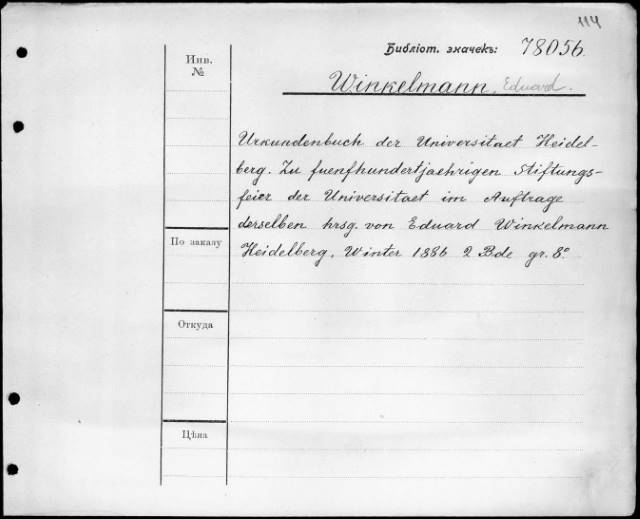 114
Библіот. значекъ: 78056.
Инв. №
Winkelmann, Eduard.
Urkundenbuch der Universitaet Heidel-
berg. Zu fuenfhundertjaehrigen Stiftungs-
feier der Universitaet im Auftrage
derselben hrsg. von Eduard Winkelmann
По заказу
Heidelberg, Winter 1886 2 Bde gr. 8°.
Откуда
Цѣна